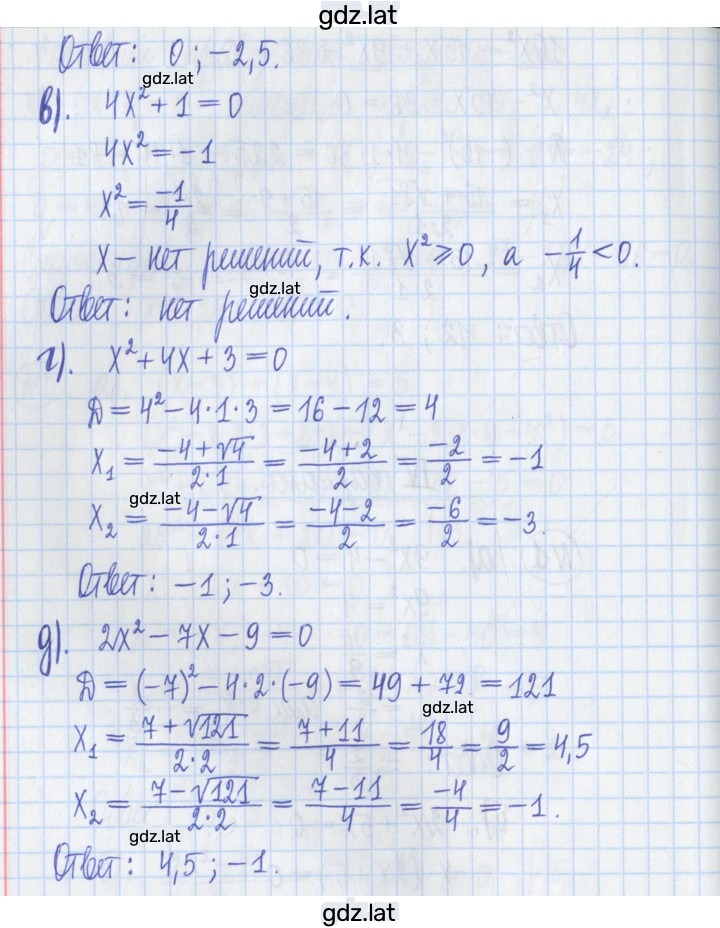 gdz.lat
Ответ: 0 ; -2,5.
gdz.lat
в). 4x² + 1 = 0
4x² = -1
x² = -1/4
x - нет решений, т.к. x² ⩾ 0, а -1/4 < 0.
gdz.lat
Ответ: нет решений.
г). x² + 4x + 3 = 0
Д = 4² - 4·1·3 = 16 - 12 = 4
x₁ = (-4+√4)/(2·1) = (-4+2)/2 = -2/2 = -1
gdz.lat
x₂ = (-4-√4)/(2·1) = (-4-2)/2 = -6/2 = -3.
Ответ: -1 ; -3.
д). 2x² - 7x - 9 = 0
Д = (-7)² - 4·2·(-9) = 49 + 72 = 121
gdz.lat
x₁ = (7+√121)/(2·2) = (7+11)/4 = 18/4 = 9/2 = 4,5
x₂ = (7-√121)/(2·2) = (7-11)/4 = -4/4 = -1.
gdz.lat
Ответ: 4,5 ; -1.
gdz.lat